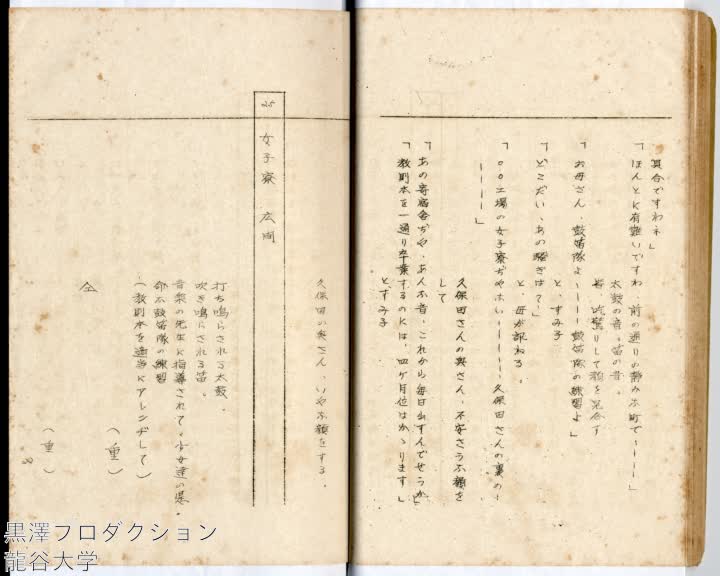 具合ですわネ」
「ほんとに有難いですわ、前の通りの静かな町で――」
太鼓の音。笛の音。
皆、吃驚りして顔を見合す
「お母さん、鼓笛隊よ――鼓笛隊の練習よ」
と、すみ子
「どこだい、あの騒ぎは?」
と、母が訊ねる。
「○○工場の女子寮ぢやない――久保田さんの裏の――
――」
久保田さんの奥さん、不安さうな顔を
して
「あの寄宿舎ぢや、あんな音、これから毎日出すんでせうか」
「教則本を一通り卒業するのには、四ケ月位はかゝります」
とすみ子
久保田の奥さん、いやな顔をする。
25 女子寮 広間
打ち鳴らされる太鼓。
吹き鳴らされる笛。
音楽の先生に指導されて、少女達の懸
命な鼓笛隊の練習
(教則本を適当にアレンヂして)
(重)
仝
(重)
黒澤プロダクション
龍谷大学